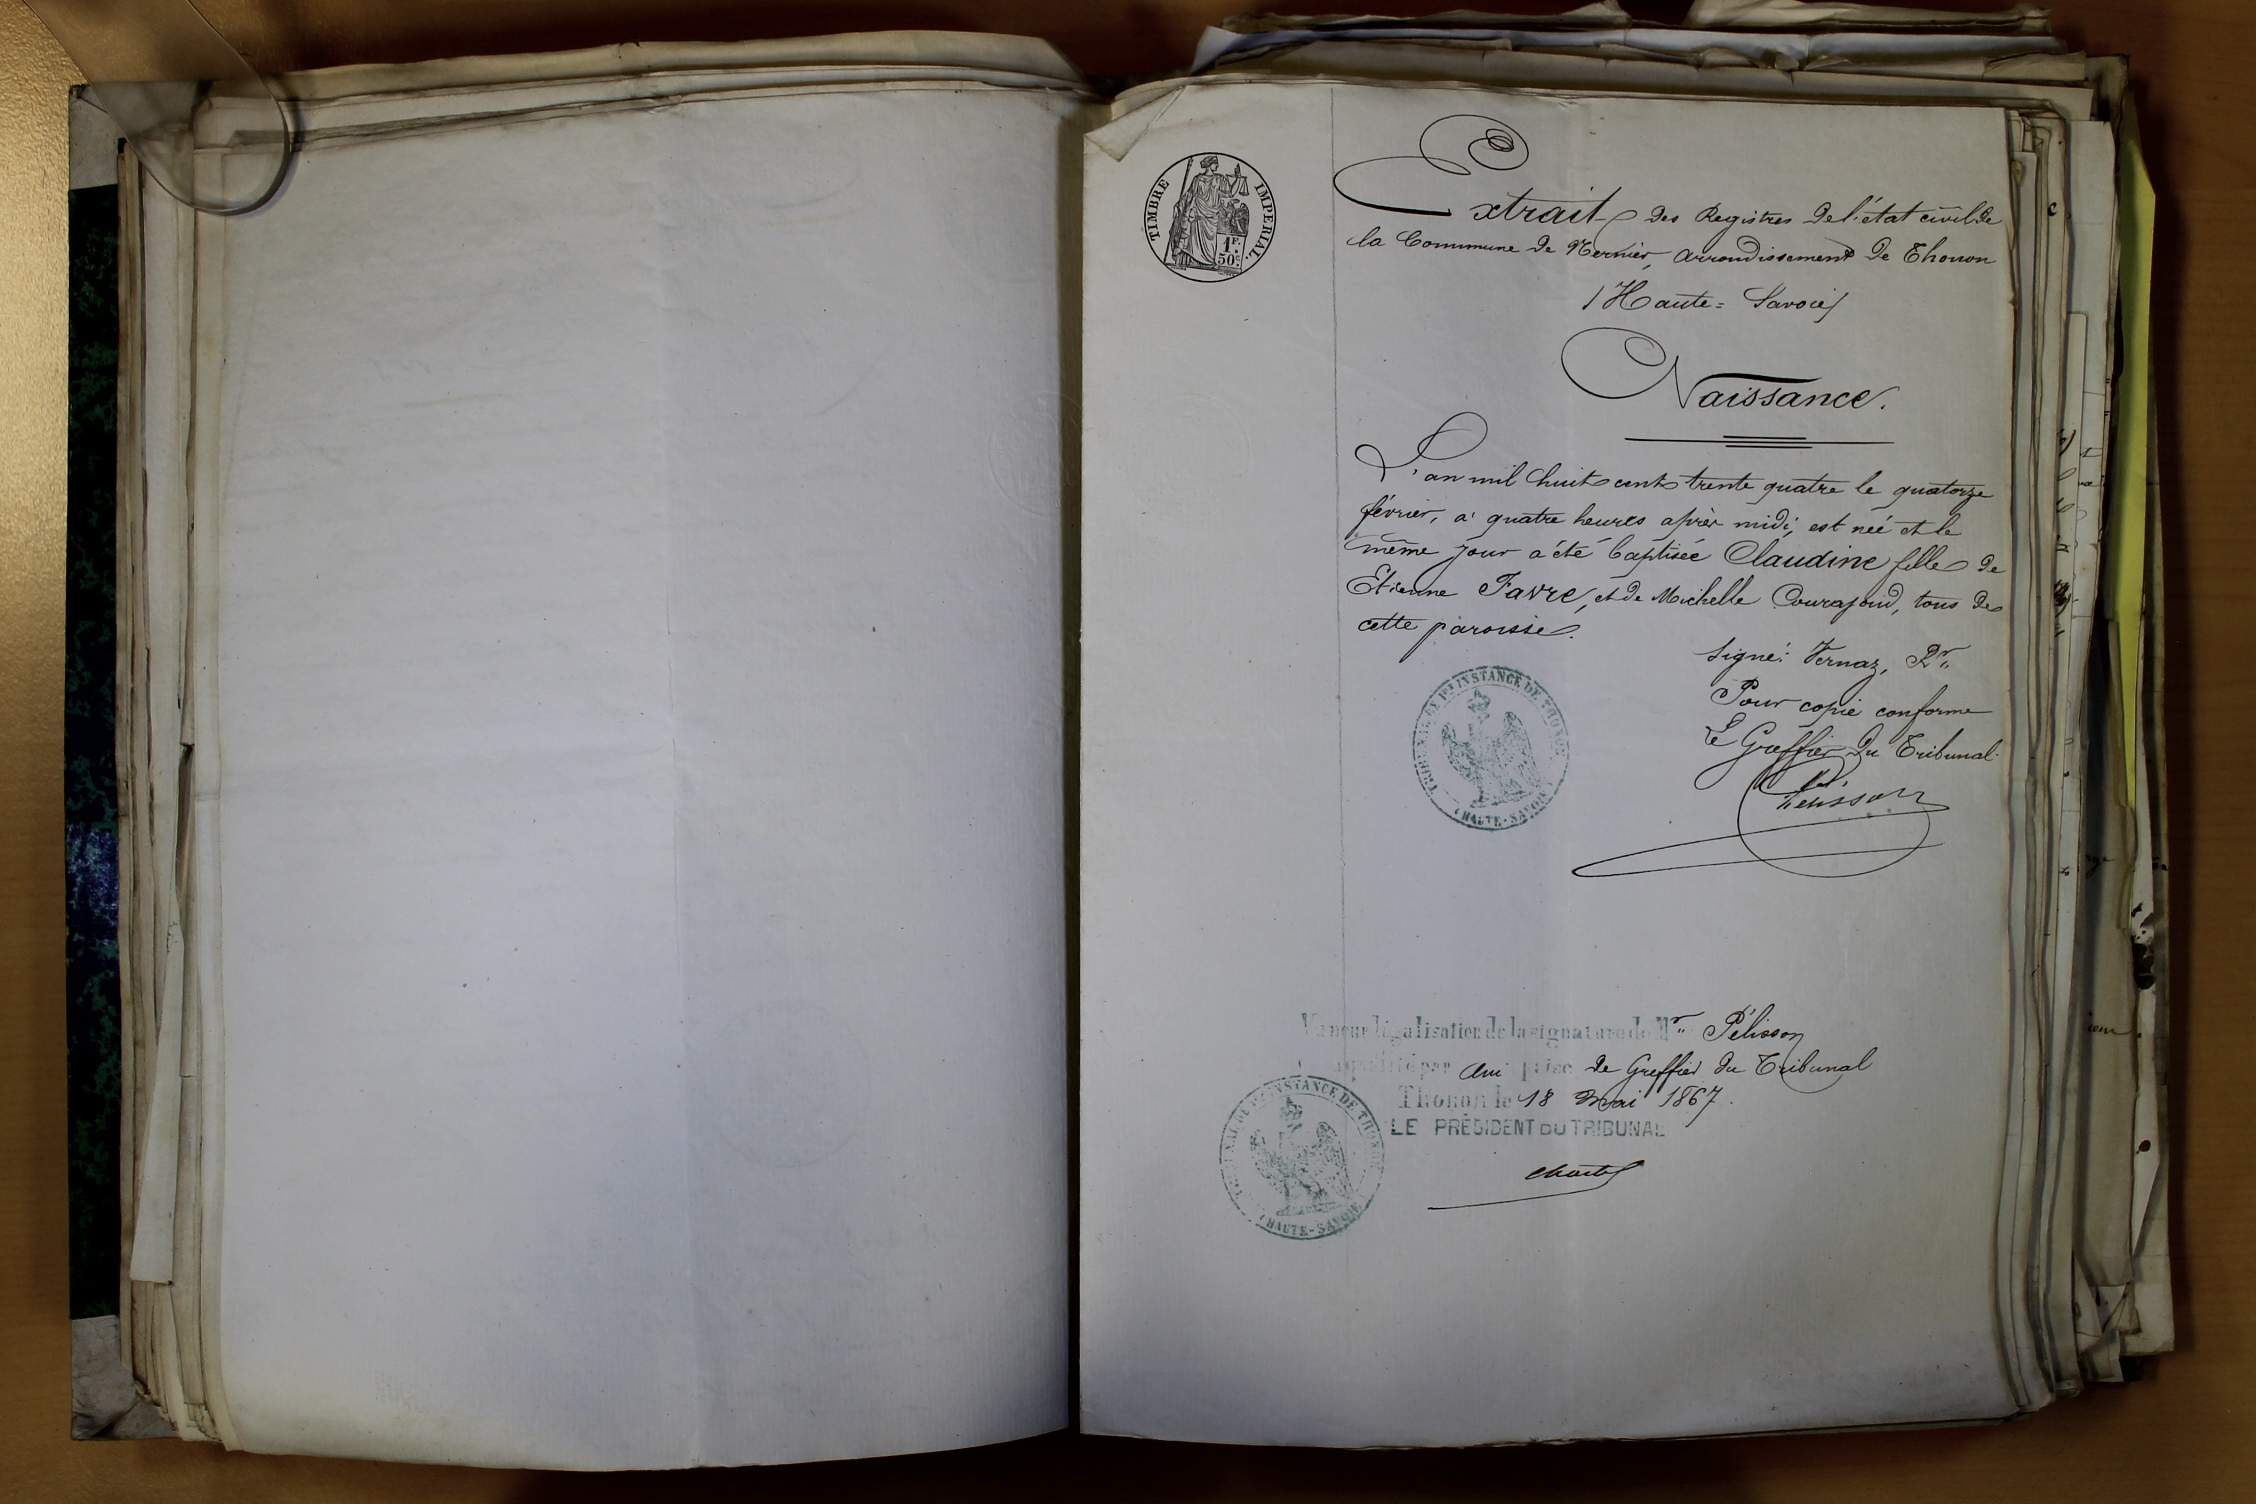 TIMBRE IMPERIAL
1F.
50c.
Extrait des Registres de l'état civil de
la Commune de Nernier, arrondissement de Thonon
(Haute=Savoie)
Naissance.
L'an mil huit cent trente quatre le quatorze
février, à quatre heures après midi, est née et le
même jour a été baptisée Claudine fille de
Etienne Favre, et de Michelle Courajoud, tous de
cette paroisse.
Signé: Vernaz, Rr.
Pour copie conforme
Le Greffier du Tribunal
Pélisson
TRIBUNAL DE 1re INSTANCE DE THONON
(HAUTE-SAVOIE)
Vu pour légalisation de la signature de Mr Pélisson
prise de Greffier du Tribunal
Thonon le 18 Mai 1867.
LE PRÉSIDENT DU TRIBUNAL
TRIBUNAL DE 1re INSTANCE DE THONON
(HAUTE-SAVOIE)